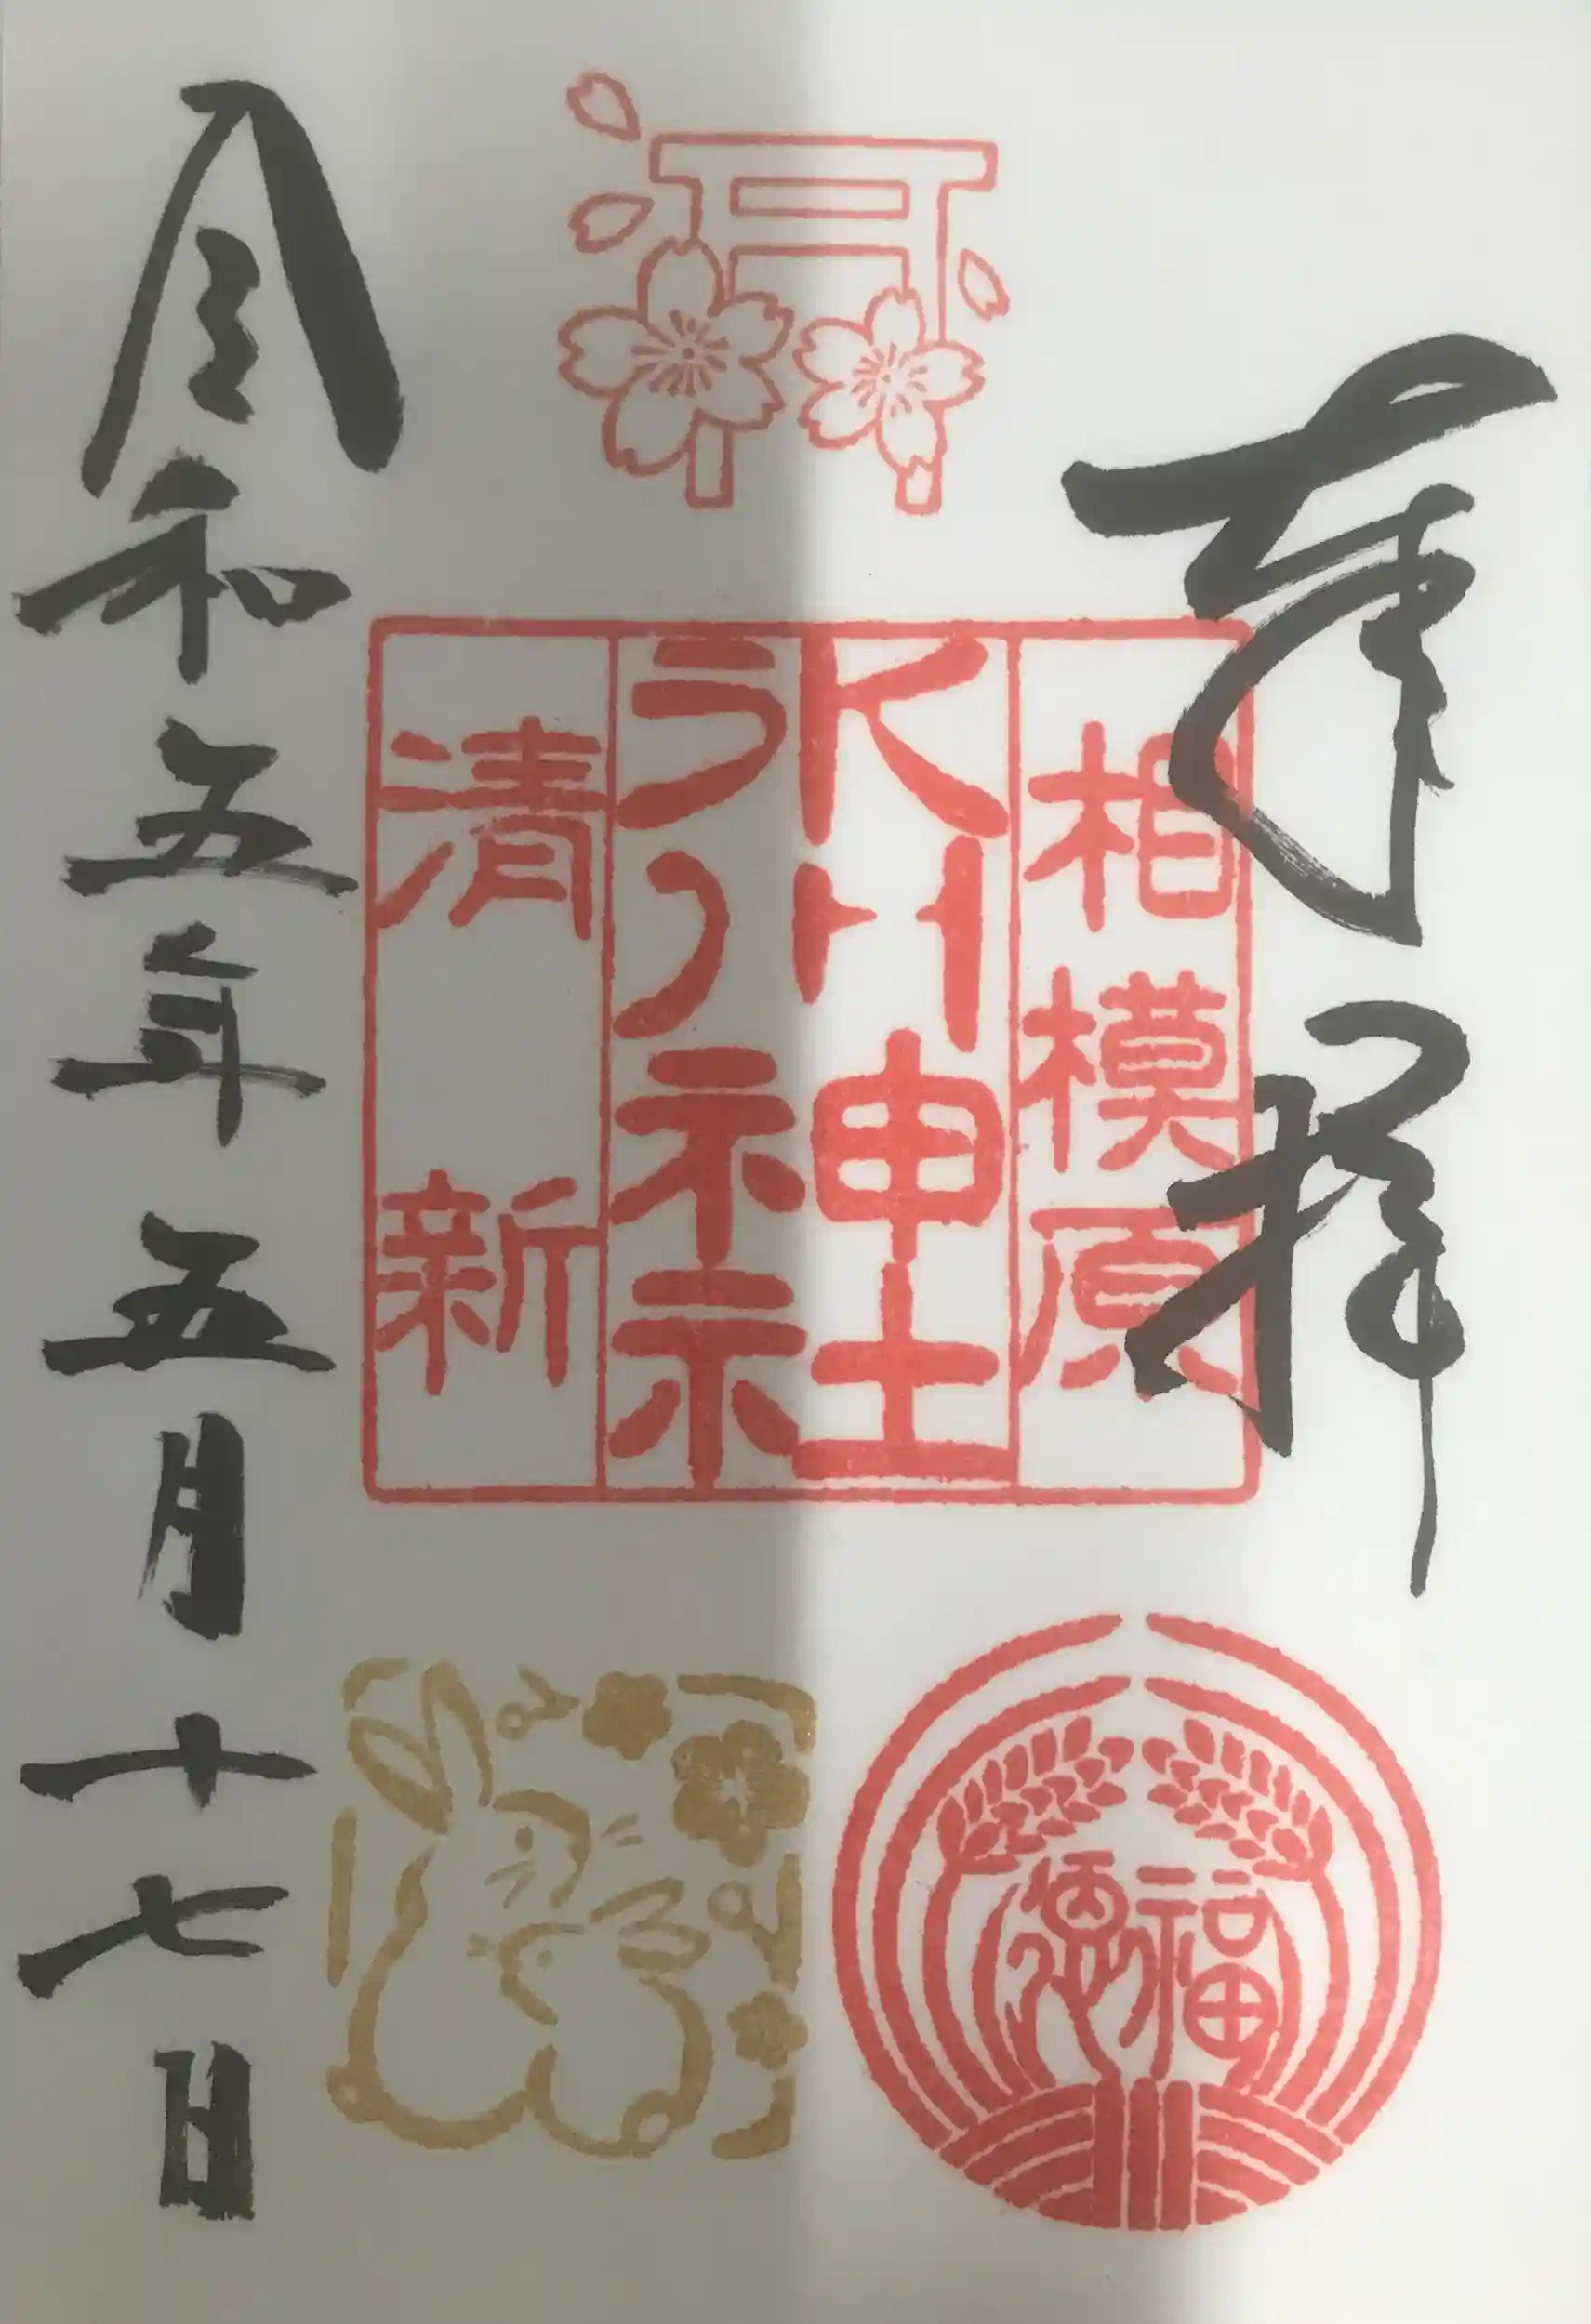 奉拝
相模原
氷川神社
清新
福徳
令和五年五月十七日